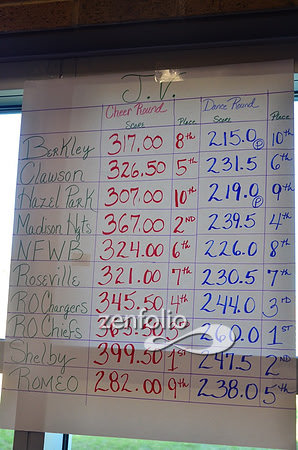 J.V.
Cheer Round Dance Round
Score Place Score Place
Berkley 317.00 8th 215.0 P 10th
Clawson 326.50 5th 231.5 6th
Hazel Park 307.00 10th 219.0 P 9th
Madison Hgts 367.00 2nd 239.5 4th
NFWB 324.00 6th 226.0 8th
Roseville 321.00 7th 230.5 7th
RO Chargers 345.50 4th 244.0 3rd
RO Chiefs zenfolio 1st
Shelby 399.50 1st 247.5 2nd
Romeo 282.00 9th 238.0 5th